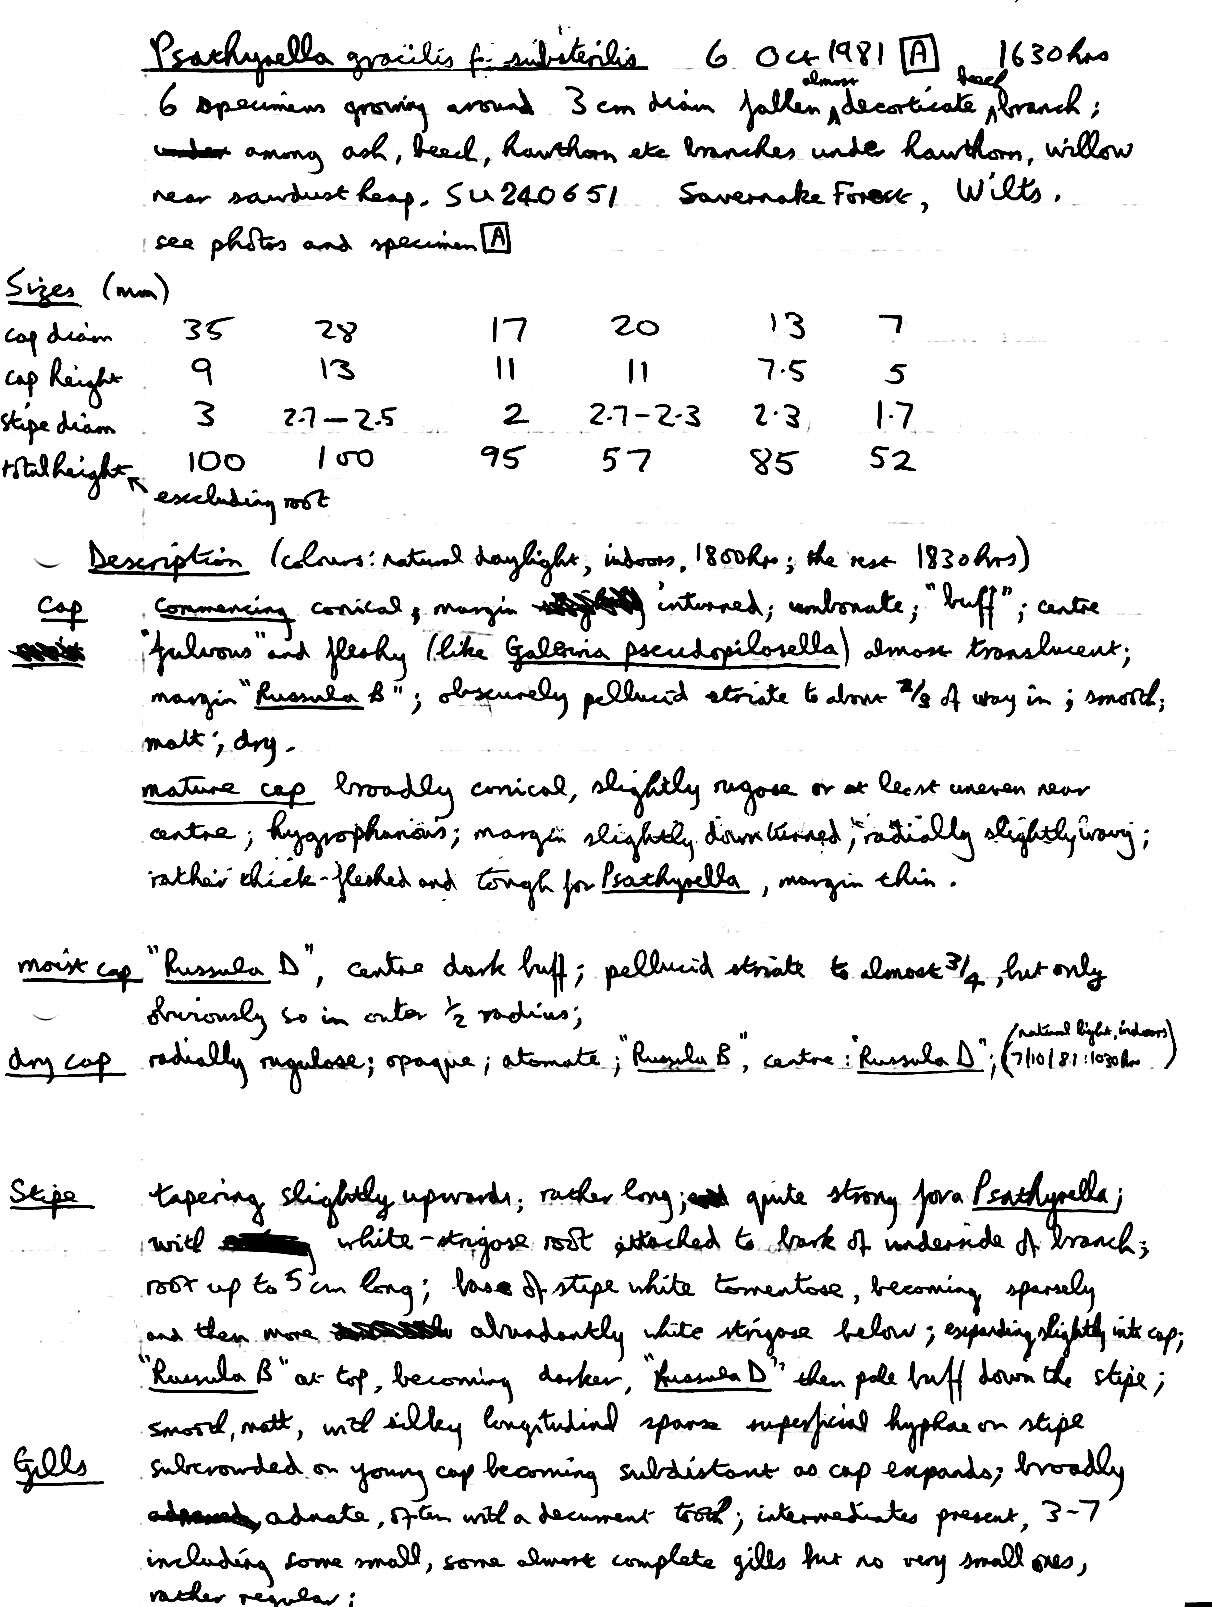 Psathyrella gracilis f. substerilis 6 Oct 1981 A 1630hrs
6 specimens growing around 3cm diam fallen almost decorticate beech branch;
under among ash, beech, hawthorn etc branches under hawthorn, willow
near sawdust heap. SU240651 Savernake Forest, Wilts.
see photos and specimen A
Sizes (mm)
cap diam 35 28 17 20 13 7
cap height 9 13 11 11 7.5 5
stipe diam 3 2.7-2.5 2 2.7-2.3 2.3 1.7
total height 100 100 95 57 85 52
excluding root
Description (colours: natural daylight, indoors, 1800hrs; the rest 1830hrs)
Cap Commencing conical, margin inturned; umbonate; "buff"; centre
"fulvous" and fleshy (like Galerina pseudopilosella) almost translucent;
margin "Russula B"; obscurely pellucid striate to about 2/3 of way in; smooth;
matt; dry.
mature cap broadly conical, slightly rugose or at least uneven near
centre; hygrophanous; margin slightly downturned; radially slightly wavy;
rather thick-fleshed and tough for Psathyrella, margin thin.
moist cap "Russula D", centre dark buff; pellucid striate to almost 3/4, but only
obviously so in outer 1/2 radius;
dry cap radially rugulose; opaque; atomate; "Russula B", centre: "Russula D"; (natural light, indoors) 7/10/81: 1030hrs
Stipe tapering slightly upwards; rather long; and quite strong for a Psathyrella;
with white-strigose root attached to bark of underside of branch;
root up to 5cm long; base of stipe white tomentose, becoming sparsely
and then more abundantly white strigose below; expanding slightly into cap;
"Russula B" at top, becoming darker, "Russula D" then pale buff down the stipe;
smooth, matt, with silky longitudinal sparse superficial hyphae on stipe
Gills subcrowded on young cap becoming subdistant as cap expands; broadly
adnate, often with a decurrent tooth; intermediates present, 3-7
including some small, some almost complete gills but no very small ones,
rather regular;